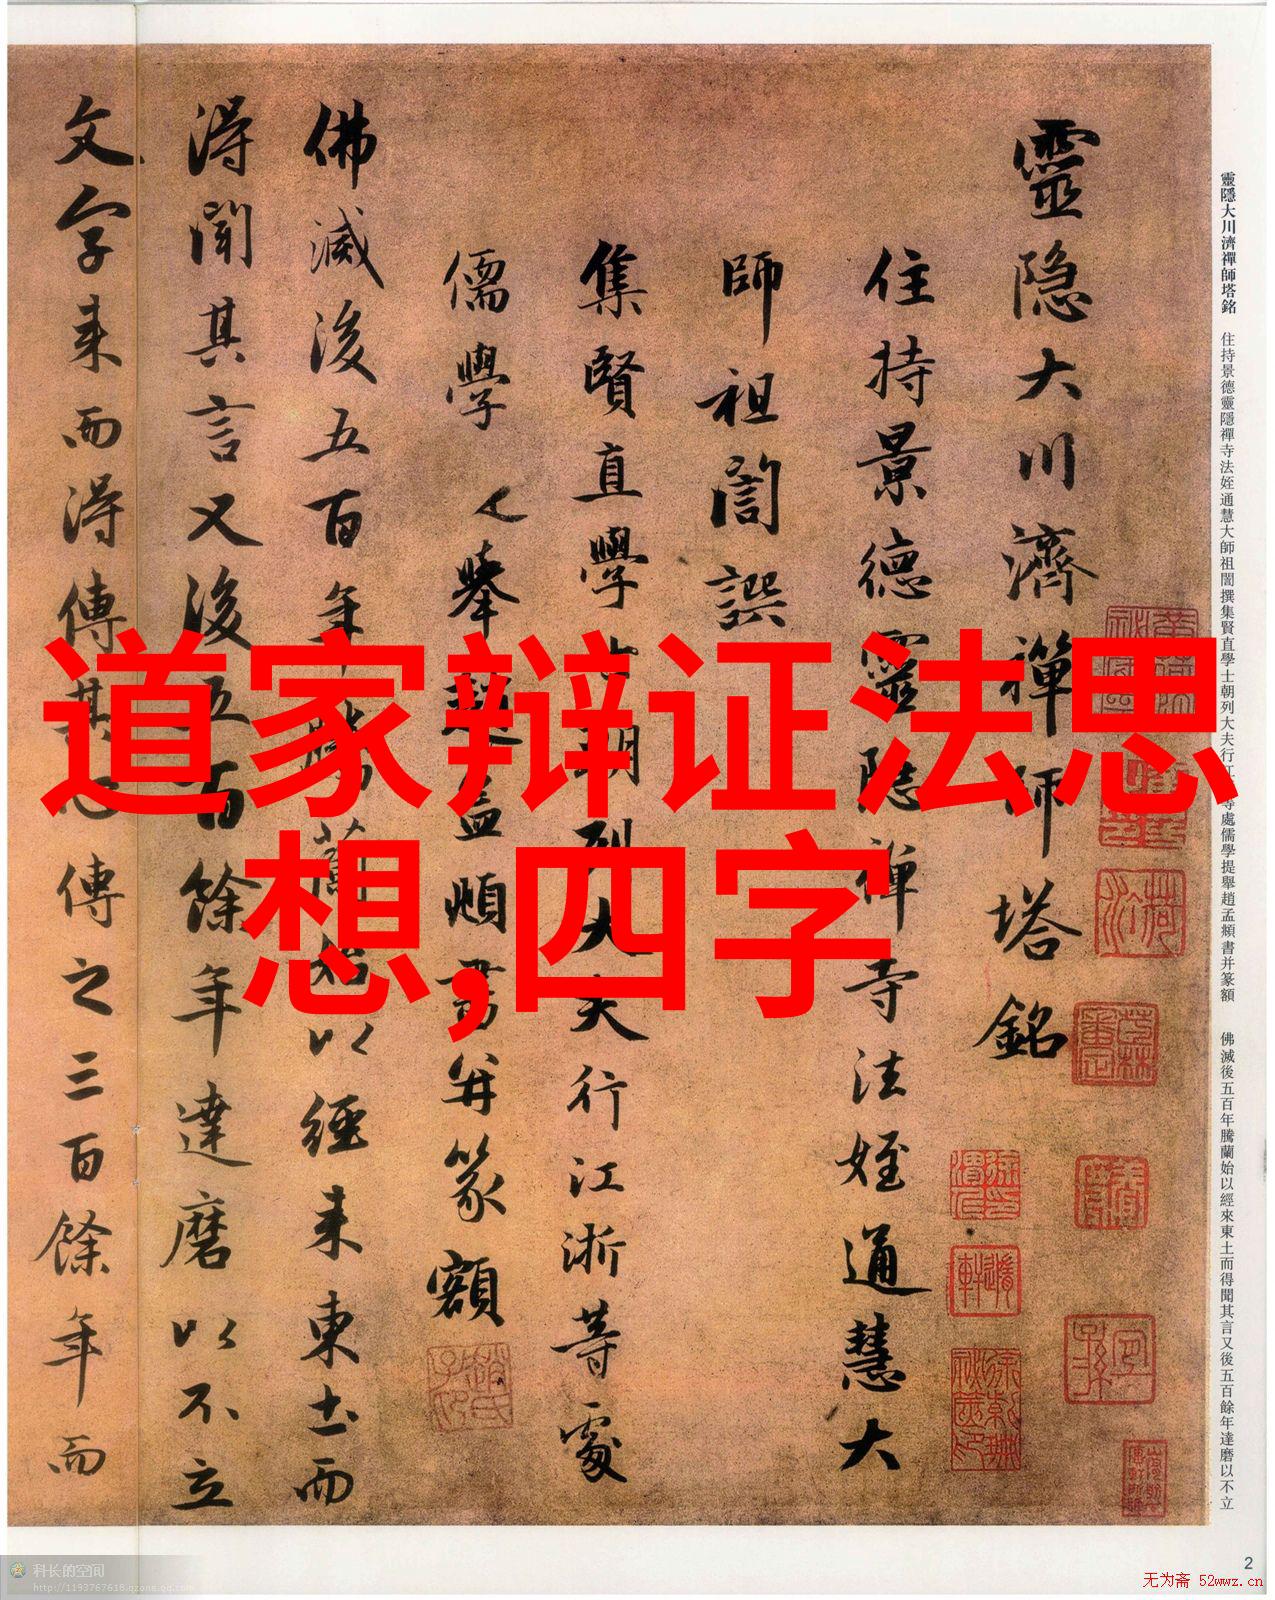 靈隱大川濟禪師塔銘
住持景德靈隱禪寺法姪通慧大
師祖誾譔
集賢直學士朝列大夫行江浙等處
儒學提舉趙孟頫書并篆額
佛滅後五百年騰蘭始以經來東土而
得聞其言又後五百餘年達磨以不立
文字來而得傳其心傳之三百餘年而
道家辩证法思
想,四字
靈隱大川濟禪師塔銘 住持景德靈隱禪寺法姪通慧大師祖誾撰集賢直學士朝列大夫行江 等處儒學提舉趙孟頫書并篆額 佛滅後五百年騰蘭始以經來東土而得聞其言又後五百餘年達磨以不立
2
科长的空间
http://1193767618.qzone.qq.com
无为斋 52wwz.cn